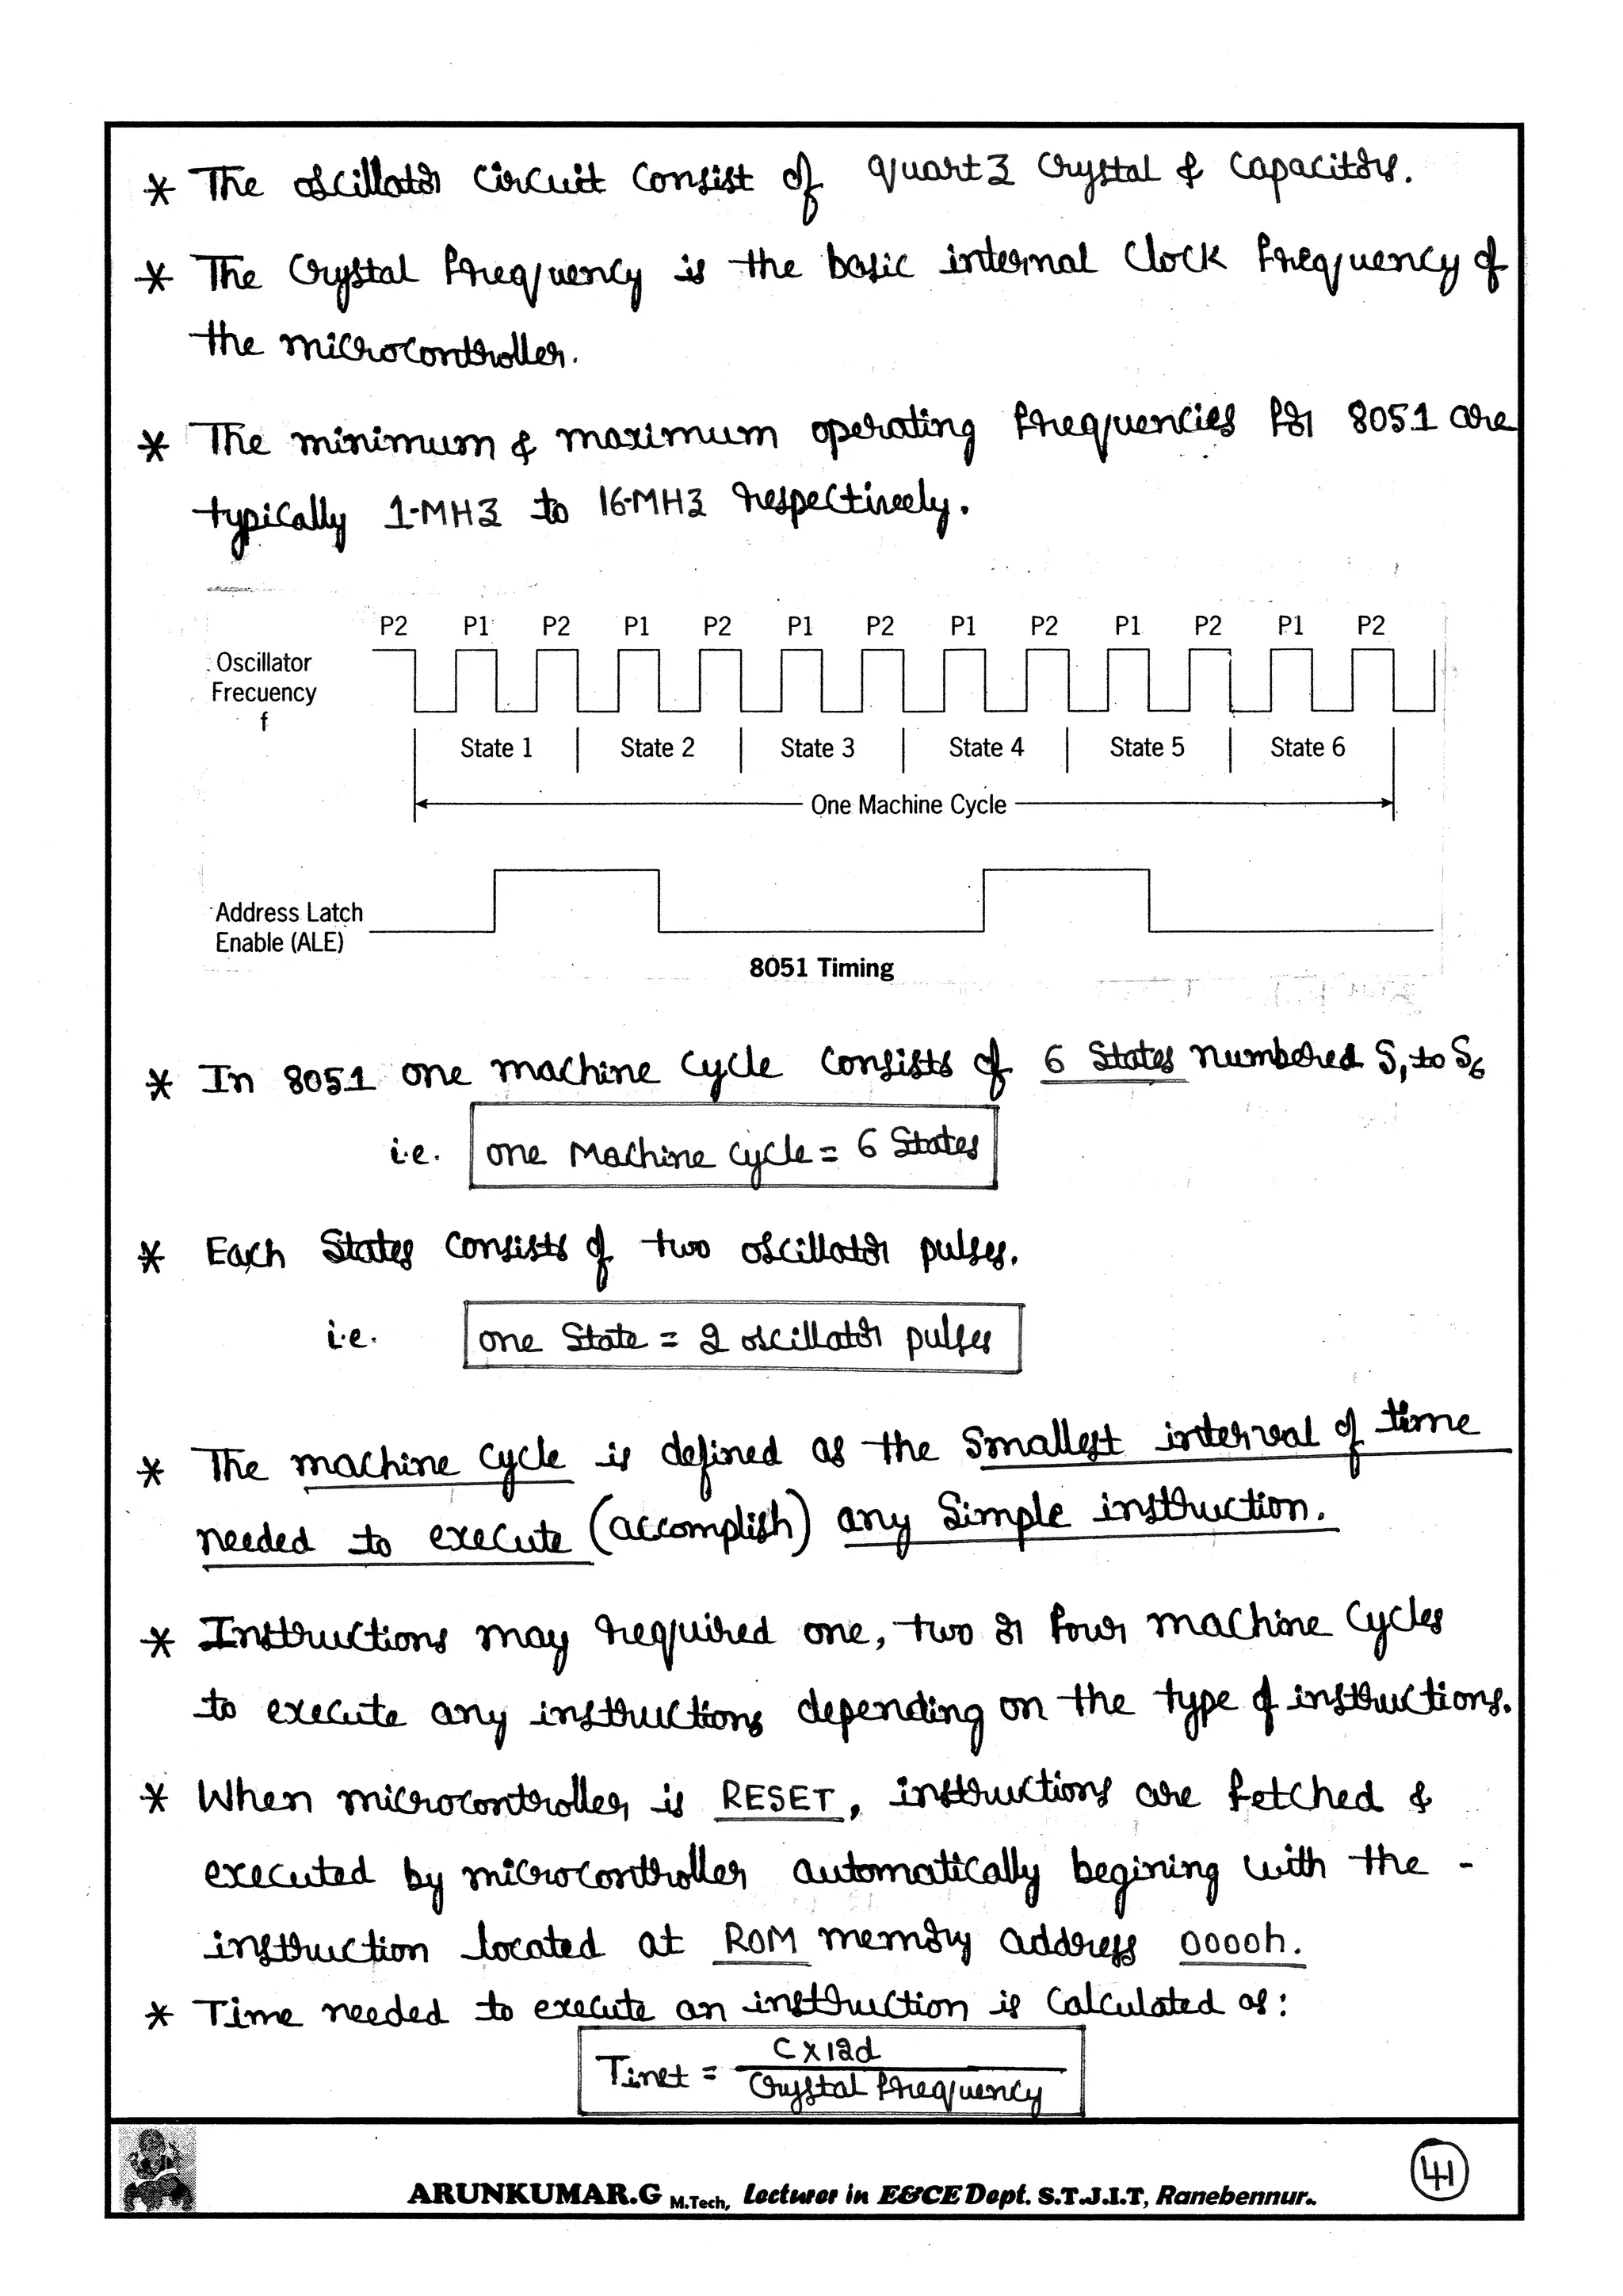 * The oscillator circuit consist of quartz crystal & capacitors.
* The crystal frequency is the basic internal clock frequency of
the microcontroller.
* The minimum & maximum operating frequencies for 8051 are
typically 1-MHz to 16-MHz respectively.
P2 P1 P2 P1 P2 P1 P2 P1 P2 P1 P2 P1 P2
Oscillator
Frecuency
f
State 1 State 2 State 3 State 4 State 5 State 6
One Machine Cycle
Address Latch
Enable (ALE)
8051 Timing
* In 8051 one machine cycle consists of 6 states numbered S1 to S6
i.e. one Machine cycle = 6 states
* Each states consists of two oscillator pulses.
i.e. one state = 2 oscillator pulses
* The machine cycle is defined as the smallest interval of time
needed to execute (accomplish) any simple instruction.
* Instructions may required one, two or four machine cycles
to execute any instructions depending on the type of instructions.
* When microcontroller is RESET, instructions are fetched &
executed by microcontroller automatically begining with the -
instruction located at ROM memory address 0000h.
* Time needed to execute an instruction is calculated as:
Tinst = C x 12d
Crystal frequency
ARUNKUMAR.G M.Tech, Lecturer in E&CE Dept. S.T.J.I.T, Ranebennur..
41